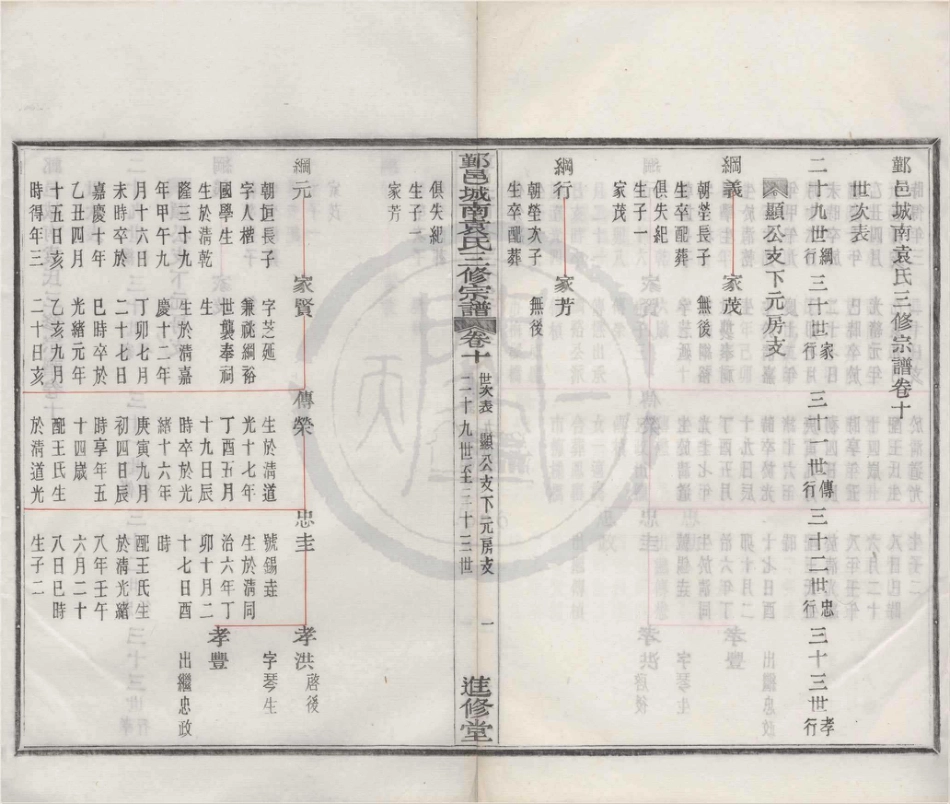 鄞邑城南袁氏三修宗譜卷十
世次表
二十九世綱行 三十世家行 三十一世傳行 三十二世忠行 三十三世孝行
顯公支下元房支
綱義 家茂
朝瑩長子 無後
生卒配葬
俱失紀
生子一
家茂
綱行 家芳
朝瑩次子 無後
生卒配葬
俱失紀
生子一
家芳
鄞邑城南袁氏三修宗譜 卷十 世次表 顯公支下元房支 二十九世至三十三世 一 進修堂
綱元 家賢 傳榮 忠圭 孝洪 啓後
朝垣長子 字芝延 生於清道 號錫圭 字琴生
字人楷 兼祧綱裕 光十七年 生於清同
國學生 世襲奉祠 丁酉五月 治六年丁 孝豐
生於清乾 生 十九日辰 卯十月二
隆三十九 生於清嘉 時卒於光 十七日酉 出繼忠政
年甲午九 慶十二年 緒十六年 時
月十六日 丁卯七月 庚寅九月 配王氏生
未時卒於 二十七日 初四日辰 於清光緒
嘉慶十年 巳時卒於 時享年五 八年壬午
乙丑四月 光緒元年 十四歲 六月二十
十五日亥 乙亥九月 配王氏生 八日巳時
時得年三 二十日亥 於清道光 生子二